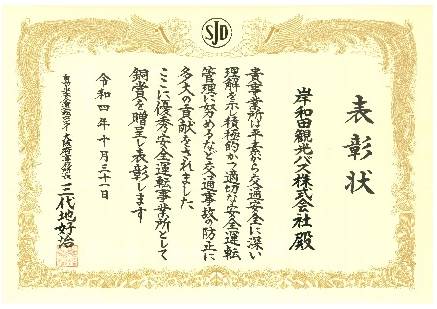 SJD
表彰状
岸和田観光バス株式会社 殿
貴事業所は平素から交通安全に深い
理解を示し積極的かつ適切な安全運転
管理に努めるなど交通事故の防止に
多大の貢献をされました
ここに優秀安全運転事業所として
銅賞を贈呈し表彰します
令和四年十月三十一日
自動車安全運転センター大阪府事務所長 三代地好治